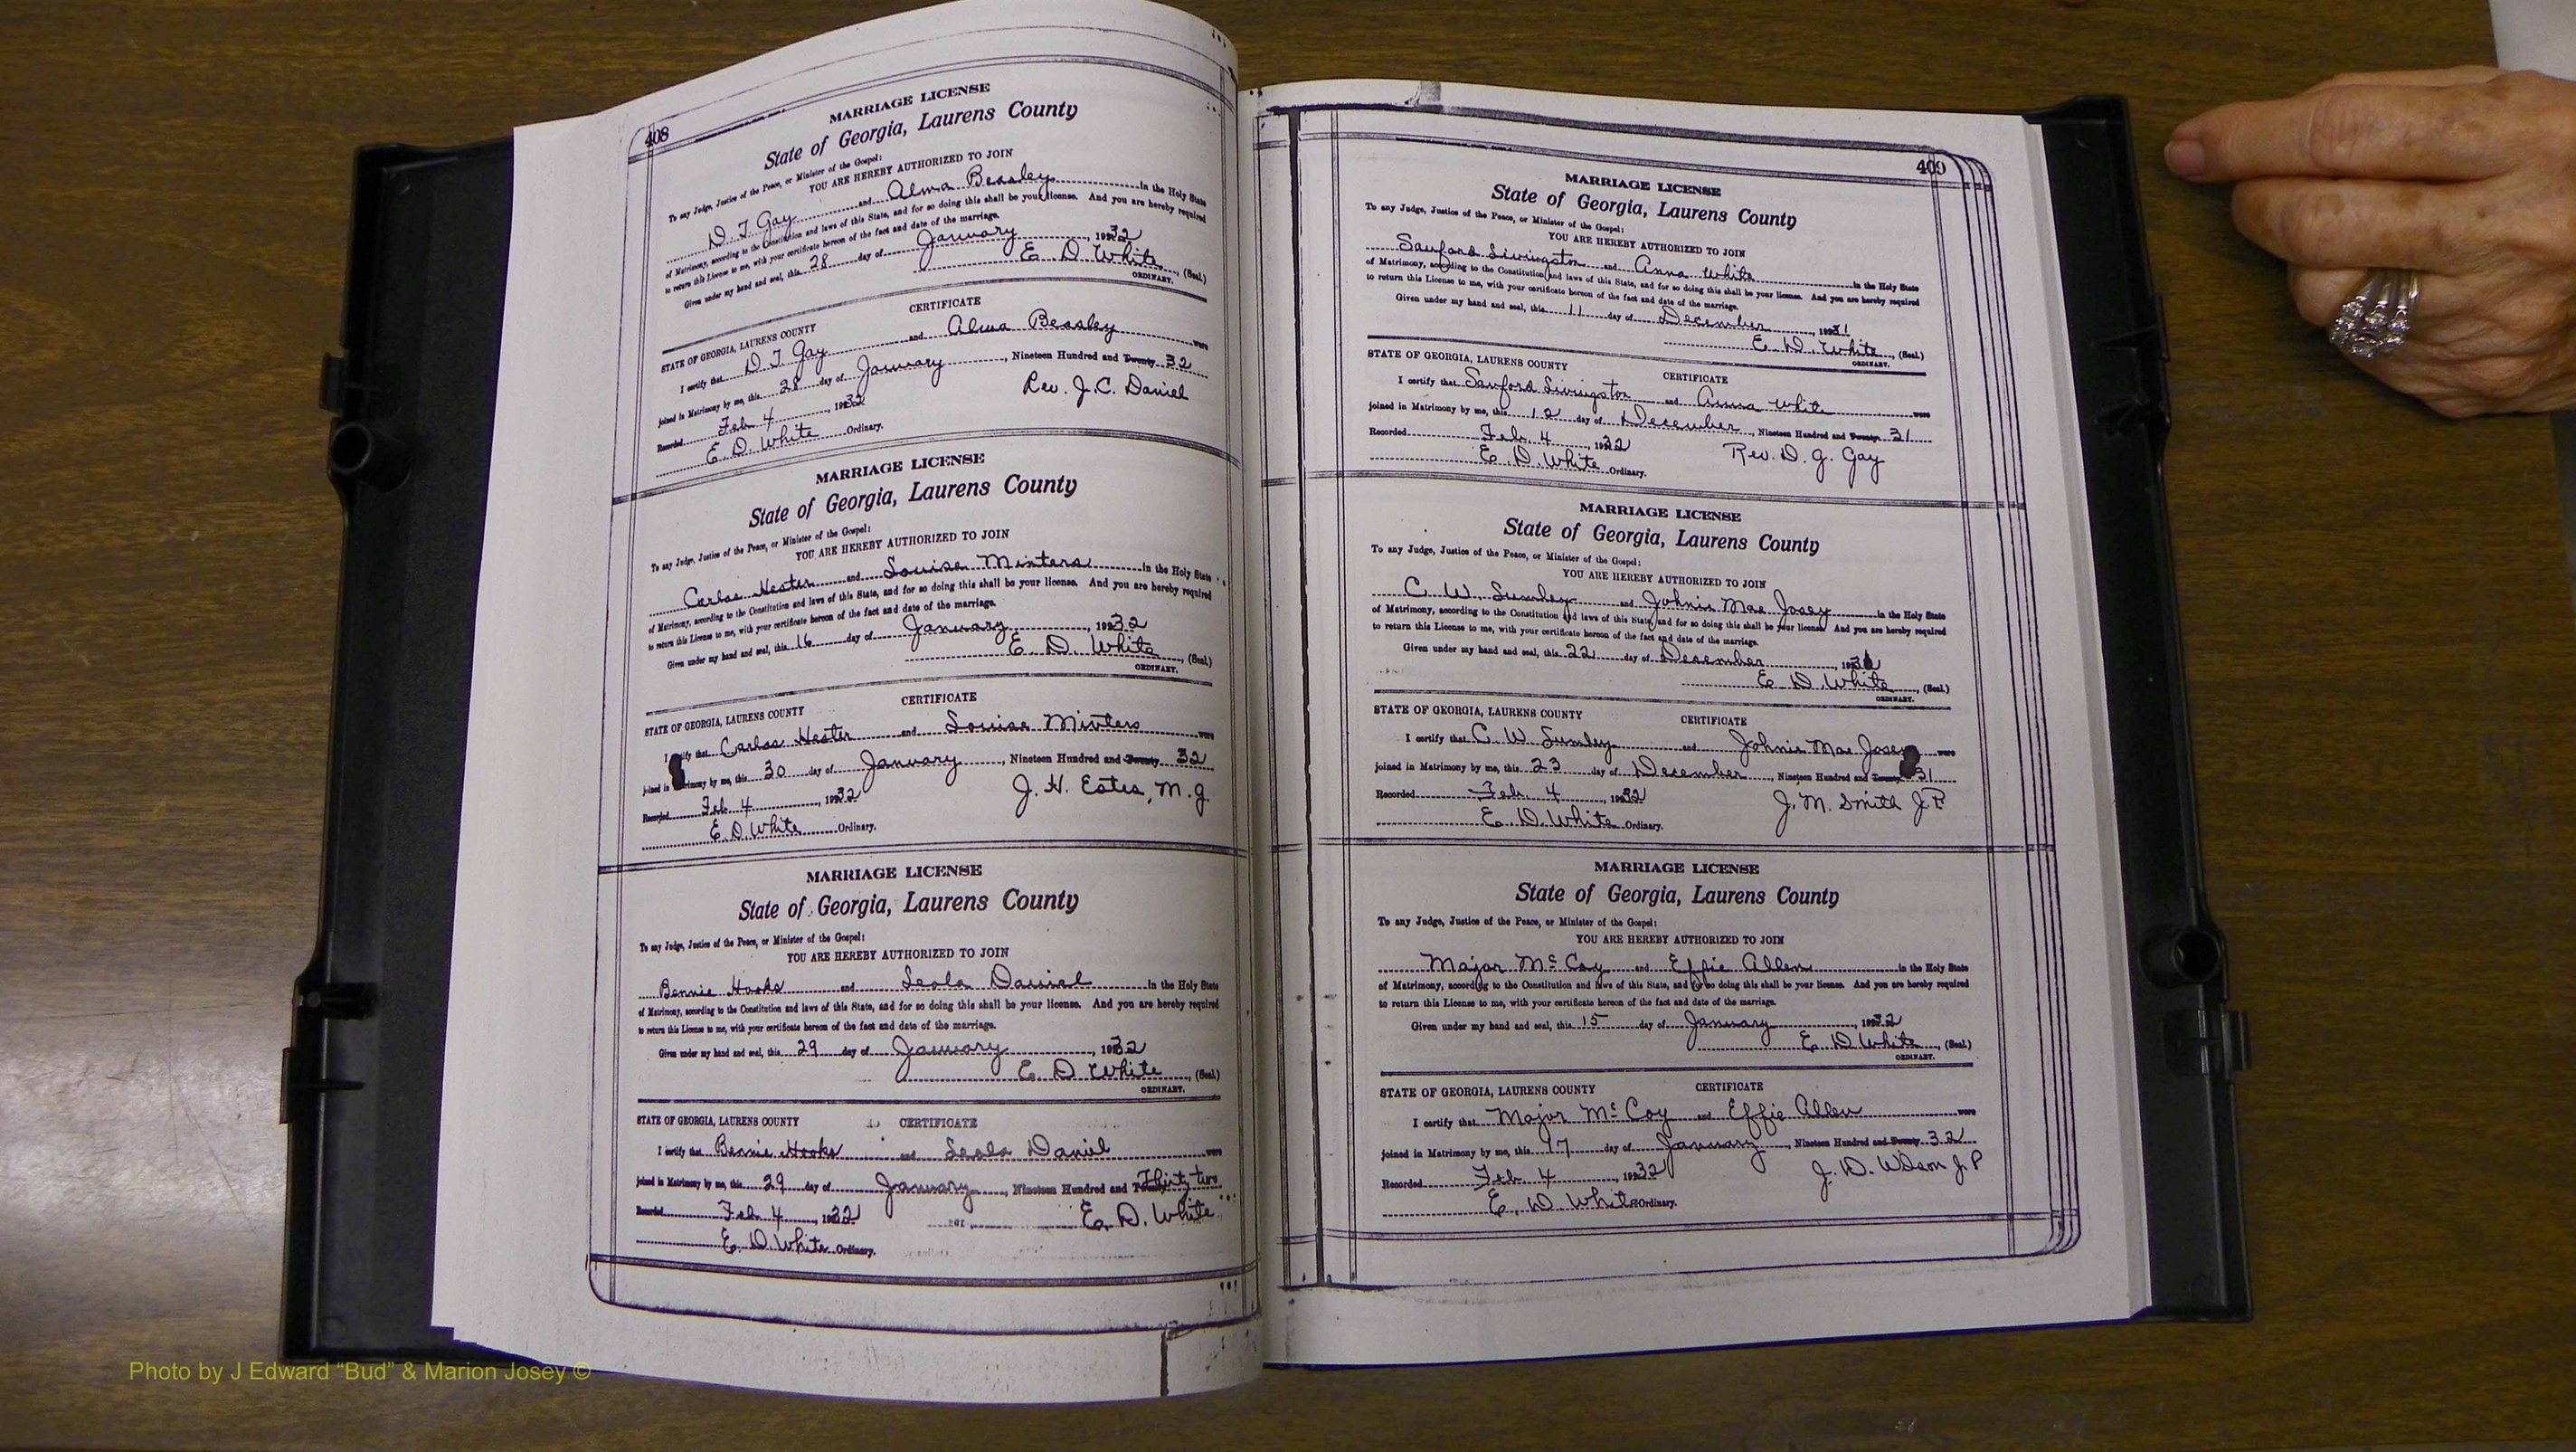 408
MARRIAGE LICENSE
State of Georgia, Laurens County
To any Judge, Justice of the Peace, or Minister of the Gospel:
YOU ARE HEREBY AUTHORIZED TO JOIN
D. T. Gay and Alma Beasley in the Holy State
of Matrimony, according to the Constitution and laws of this State, and for so doing this shall be your license. And you are hereby required
to return this License to me, with your certificate hereon of the fact and date of the marriage.
Given under my hand and seal, this 28 day of January, 1932
E. D. White, (Seal.)
ORDINARY.
CERTIFICATE
STATE OF GEORGIA, LAURENS COUNTY
I certify that D. T. Gay and Alma Beasley were
joined in Matrimony by me, this 28 day of January, Nineteen Hundred and Twenty 32
Rev. J. C. Daniel
Recorded Feb 4, 1932
E. D. White Ordinary.
MARRIAGE LICENSE
State of Georgia, Laurens County
To any Judge, Justice of the Peace, or Minister of the Gospel:
YOU ARE HEREBY AUTHORIZED TO JOIN
Carlos Hester and Louise Minters in the Holy State
of Matrimony, according to the Constitution and laws of this State, and for so doing this shall be your license. And you are hereby required
to return this License to me, with your certificate hereon of the fact and date of the marriage.
Given under my hand and seal, this 16 day of January, 1932
E. D. White, (Seal.)
ORDINARY.
CERTIFICATE
STATE OF GEORGIA, LAURENS COUNTY
I certify that Carlos Hester and Louise Minters were
joined in Matrimony by me, this 30 day of January, Nineteen Hundred and Twenty 32
J. H. Estes, M. G.
Recorded Feb 4, 1932
E. D. White Ordinary.
MARRIAGE LICENSE
State of Georgia, Laurens County
To any Judge, Justice of the Peace, or Minister of the Gospel:
YOU ARE HEREBY AUTHORIZED TO JOIN
Bennie Hooks and Leola Daniel in the Holy State
of Matrimony, according to the Constitution and laws of this State, and for so doing this shall be your license. And you are hereby required
to return this License to me, with your certificate hereon of the fact and date of the marriage.
Given under my hand and seal, this 29 day of January, 1932
E. D. White, (Seal.)
ORDINARY.
STATE OF GEORGIA, LAURENS COUNTY CERTIFICATE
I certify that Bennie Hooks and Leola Daniel were
joined in Matrimony by me, this 29 day of January, Nineteen Hundred and Thirty two
Recorded Feb 4, 1932 E. D. White
E. D. White Ordinary.
409
MARRIAGE LICENSE
State of Georgia, Laurens County
To any Judge, Justice of the Peace, or Minister of the Gospel:
YOU ARE HEREBY AUTHORIZED TO JOIN
Sanford Livingston and Anna White in the Holy State
of Matrimony, according to the Constitution and laws of this State, and for so doing this shall be your license. And you are hereby required
to return this License to me, with your certificate hereon of the fact and date of the marriage.
Given under my hand and seal, this 11 day of December, 1931
E. D. White, (Seal.)
ORDINARY.
STATE OF GEORGIA, LAURENS COUNTY CERTIFICATE
I certify that Sanford Livingston and Anna White were
joined in Matrimony by me, this 12 day of December, Nineteen Hundred and Twenty 31
Recorded Feb. 4, 1932 Rev. D. G. Gay
E. D. White Ordinary.
MARRIAGE LICENSE
State of Georgia, Laurens County
To any Judge, Justice of the Peace, or Minister of the Gospel:
YOU ARE HEREBY AUTHORIZED TO JOIN
C. W. Sumley and Johnie Mae Josey in the Holy State
of Matrimony, according to the Constitution and laws of this State, and for so doing this shall be your license. And you are hereby required
to return this License to me, with your certificate hereon of the fact and date of the marriage.
Given under my hand and seal, this 22 day of December, 1931
E. D. White, (Seal.)
ORDINARY.
STATE OF GEORGIA, LAURENS COUNTY CERTIFICATE
I certify that C. W. Sumley and Johnie Mae Josey were
joined in Matrimony by me, this 23 day of December, Nineteen Hundred and Twenty 31
Recorded Feb. 4, 1932 J. M. Smith J. P
E. D. White Ordinary.
MARRIAGE LICENSE
State of Georgia, Laurens County
To any Judge, Justice of the Peace, or Minister of the Gospel:
YOU ARE HEREBY AUTHORIZED TO JOIN
Major McCoy and Effie Allen in the Holy State
of Matrimony, according to the Constitution and laws of this State, and for so doing this shall be your license. And you are hereby required
to return this License to me, with your certificate hereon of the fact and date of the marriage.
Given under my hand and seal, this 15 day of January, 1932
E. D. White, (Seal.)
ORDINARY.
STATE OF GEORGIA, LAURENS COUNTY CERTIFICATE
I certify that Major McCoy and Effie Allen were
joined in Matrimony by me, this 17 day of January, Nineteen Hundred and Twenty 32
Recorded Feb 4, 1932 J. D. Wilson J. P
E. D. White Ordinary.
Photo by J Edward “Bud” & Marion Josey ©